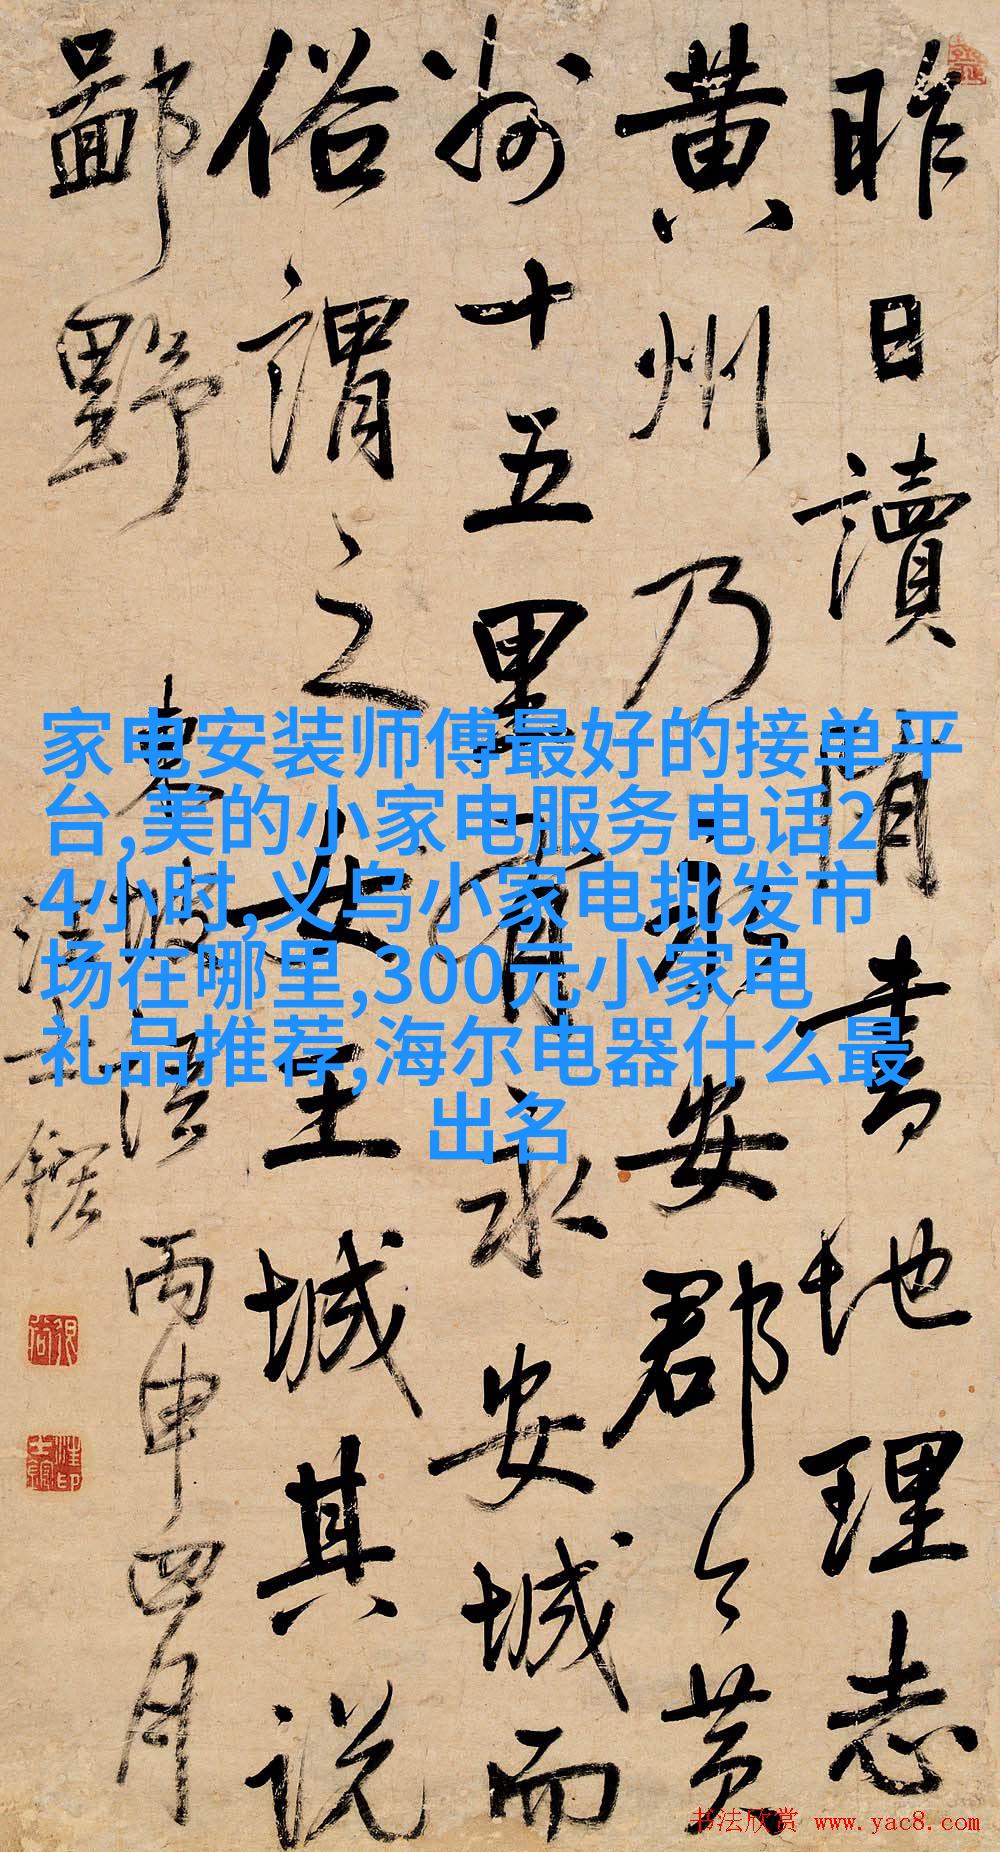 昨日讀隋書地理志
黄州乃永安郡今黄
州十五里有永安城而
俗謂之女王城其説
鄙野
東坡語丙申四月
汪士鋐
家电安装师傅最好的接单平
台,美的小家电服务电话2
4小时,义乌小家电批发市
场在哪里,300元小家电
礼品推荐,海尔电器什么最
出名
书法欣赏 www.yac8.com